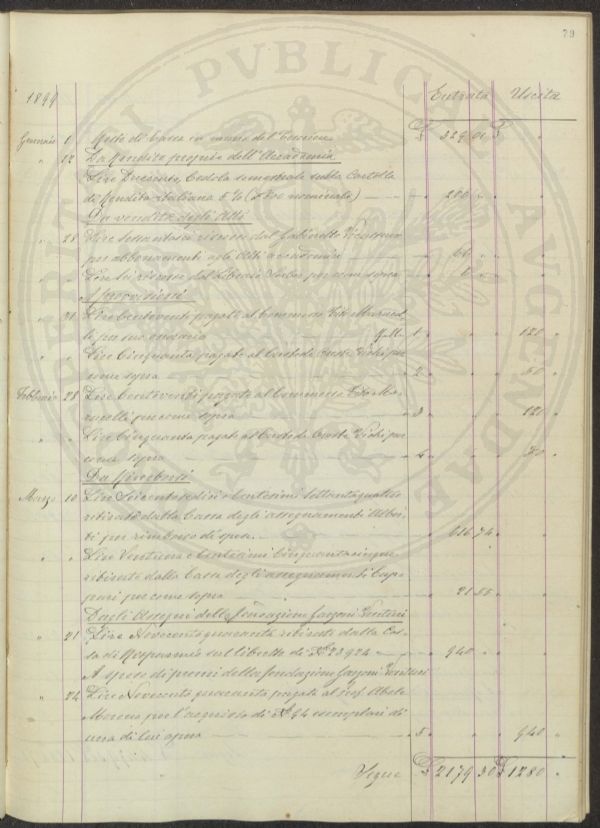 79
1899
Entrata Uscita
Gennaio 1 Resto di Cassa in mano del Tesoriere £ 329 01 £ "
" 12 Da Rendite proprie dell'Accademia
Lire Duecento, Cedola semestrale sulla Cartella
di Rendita italiana 5 % ( nominale) 200 "
Da vendite degli Atti
" 28 Lire sessantasei riscosse dal Gabinetto Vieusseux
per abbonamenti agli Atti accademia 66 "
" " Lire sei riscosse dal Libraio per come sopra 6 "
A provvisioni
" 31 Lire Centoventi pagate al Commesso
per sua 1 " " 120 "
" " Lire Cinquanta pagate al Custode per
come sopra 2 " " 50 "
Febbraio 28 Lire Centoventi pagate al Commesso
per come sopra 3 " " 120 "
" " Lire Cinquanta pagate al Custode per
come sopra 4 " " 50 "
Da Rimborsi
Marzo 10 Lire Seicentosedici e Centesimi Settantaquattro
ritirate dalla Cassa degli assegnamenti Alber
ti per rimborso di spese. 616 74 "
" " Lire Ventuna e Centesimi Cinquantacinque
ritirate dalla Cassa degli assegnamenti Cap
pari per come sopra 21 55 "
Dagli Assegni della fondazione Garzoni Venturi
" 21 Lire Novecentoquaranta ritirate dalla Cas
sa di Risparmio sul libretto di N° 23924 940 "
A spese di premi della fondazione Garzoni Venturi
" 24 Lire Novecentoquaranta pagate al prof. Abele
Morena per l'acquisto di N° 94 esemplari di
una di lui opera 5 " " 940 "
Segue £ 2179 30 £ 1280 "